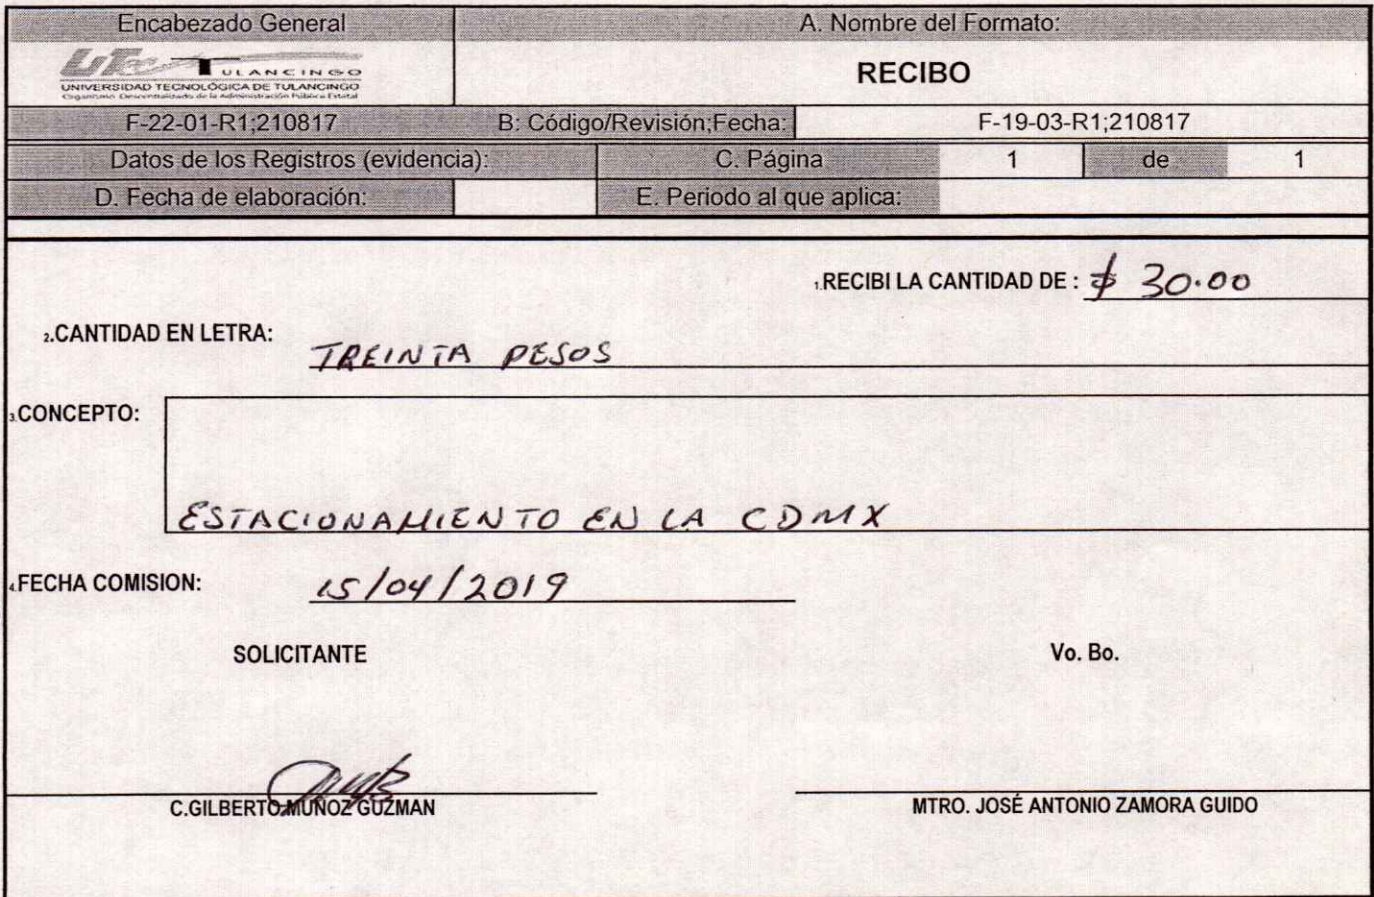 Encabezado General
A. Nombre del Formato:
UTec TULANCINGO
UNIVERSIDAD TECNOLÓGICA DE TULANCINGO
Organismo Descentralizado de la Administración Pública Estatal
RECIBO
F-22-01-R1;210817 B: Código/Revisión;Fecha: F-19-03-R1;210817
Datos de los Registros (evidencia): C. Página 1 de 1
D. Fecha de elaboración: E. Periodo al que aplica:
1.RECIBI LA CANTIDAD DE : $ 30.00
2.CANTIDAD EN LETRA: TREINTA PESOS
3.CONCEPTO:
ESTACIONAMIENTO EN LA CDMX
4.FECHA COMISION: 15/04/2019
SOLICITANTE Vo. Bo.
C.GILBERTO MUÑOZ GUZMAN MTRO. JOSÉ ANTONIO ZAMORA GUIDO